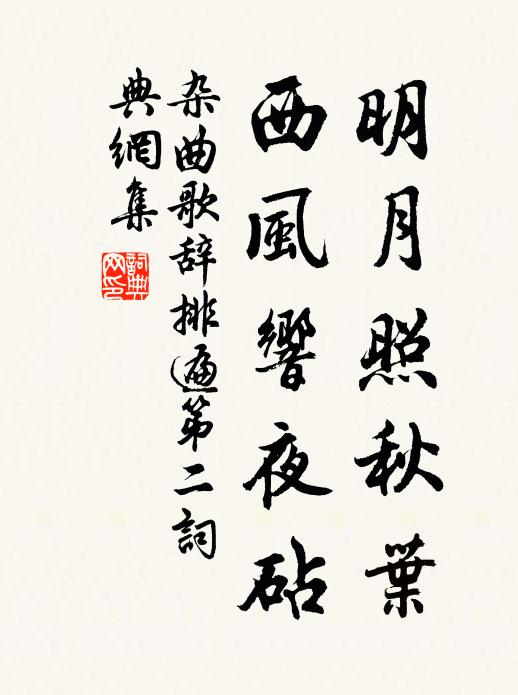 明月照秋葉
西風響夜砧
杂曲歌辞排遍第二詞
典網集
詞典網印